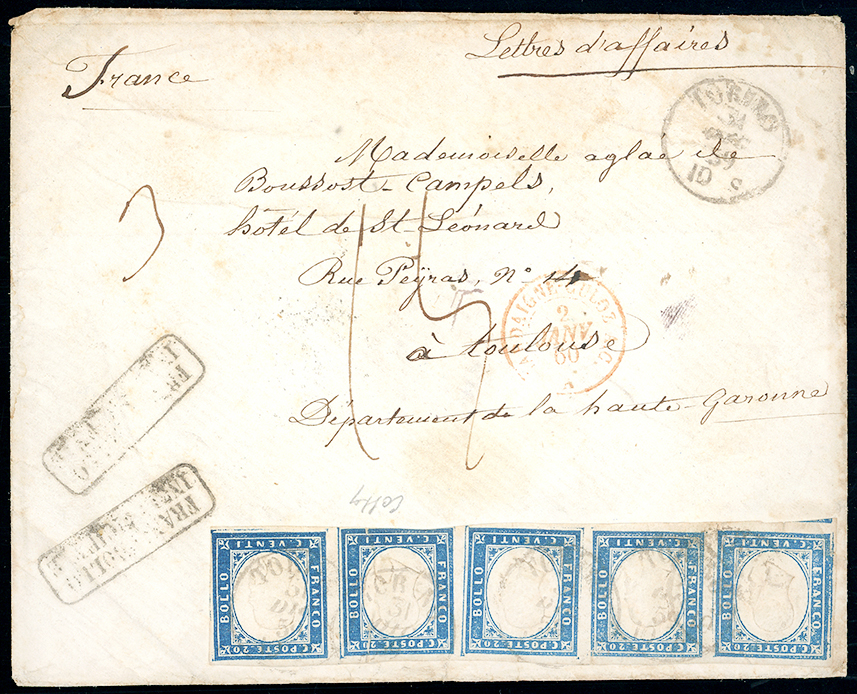 Lettres d'affaires
France
TORINO
31
DIC
59
10 S
Mademoiselle aglaé de
Boussost-Campels,
hôtel de St Léonard
3
15
Rue Peÿras, N° 14
2
JANV
60
à toulouse
Département de la haute-Garonne
FRANCOBOLLO
INSUFFICIENTE
FRANCOBOLLO
INSUFFICIENTE
C. VENTI
BOLLO
FRANCO
C. POSTE 20
C. VENTI
BOLLO
FRANCO
C. POSTE 20
C. VENTI
BOLLO
FRANCO
C. POSTE 20
C. VENTI
BOLLO
FRANCO
C. POSTE 20
C. VENTI
BOLLO
FRANCO
C. POSTE 20